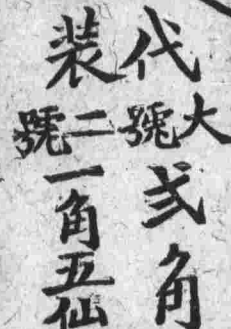 代装
大號弍角
二號一角五仙